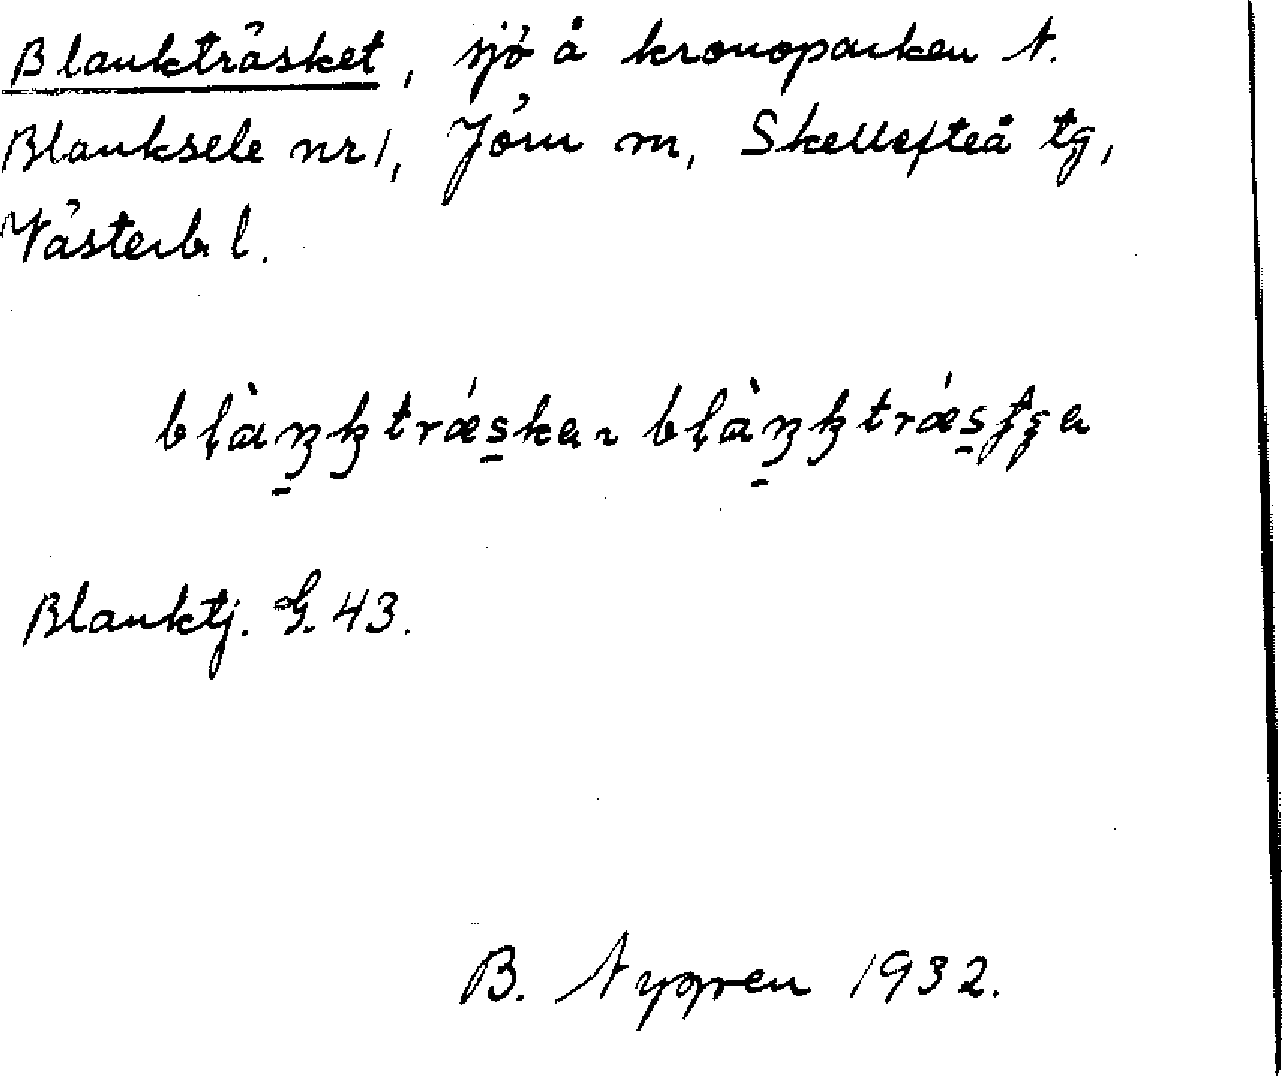 Blankträsket, sjö å kronoparken N.
Blanksele nr 1, Jörn sn, Skellefteå tg,
Västerb. l.
Blanktj. G. 43.
B. Nygren 1932.